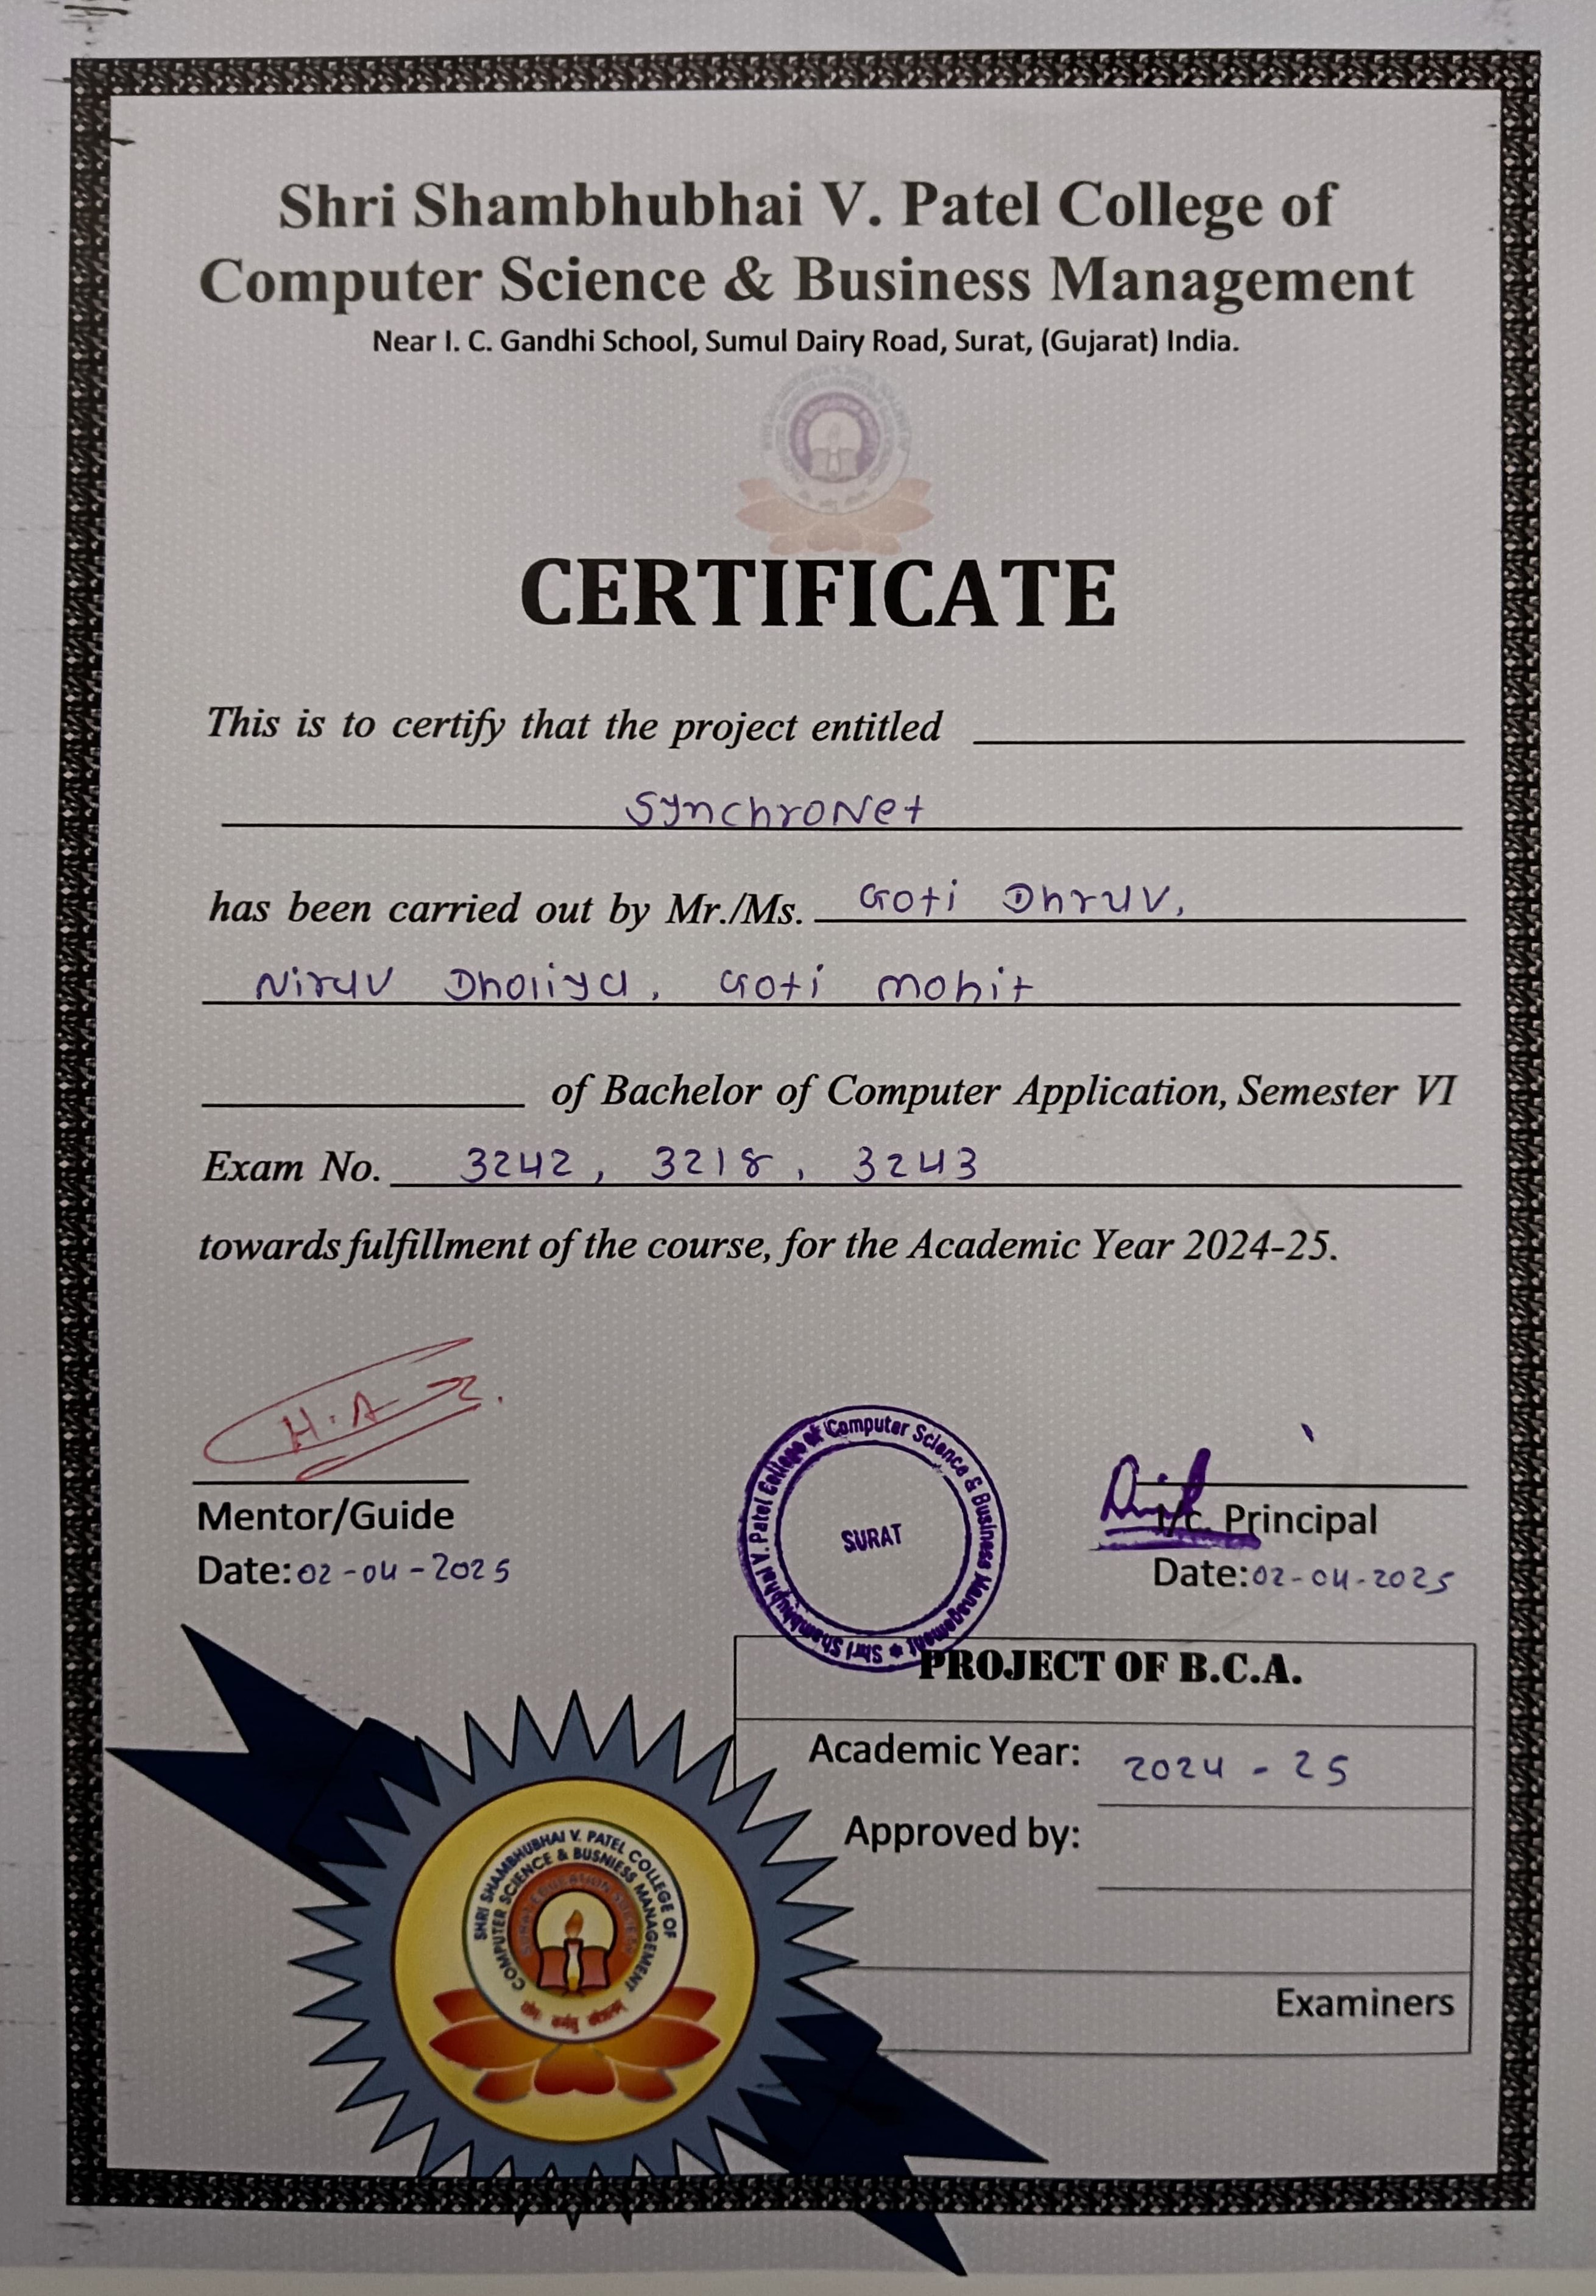 Shri Shambhubhai V. Patel College of
Computer Science & Business Management
Near I. C. Gandhi School, Sumul Dairy Road, Surat, (Gujarat) India.
CERTIFICATE
This is to certify that the project entitled
SynchroNet
has been carried out by Mr./Ms. Goti Dhruv,
Nirav Dholiya, Goti Mohit
of Bachelor of Computer Application, Semester VI
Exam No. 3242, 3218, 3243
towards fulfillment of the course, for the Academic Year 2024-25.
H.A
Mentor/Guide
Date: 02-04-2025
Shri Shambhubhai V. Patel College of Computer Science & Business Management
SURAT
I/c. Principal
Date: 02-04-2025
PROJECT OF B.C.A.
Academic Year: 2024-25
Approved by:
Examiners
SHRI SHAMBHUBHAI V. PATEL COLLEGE OF
COMPUTER SCIENCE & BUSNIESS MANAGEMENT